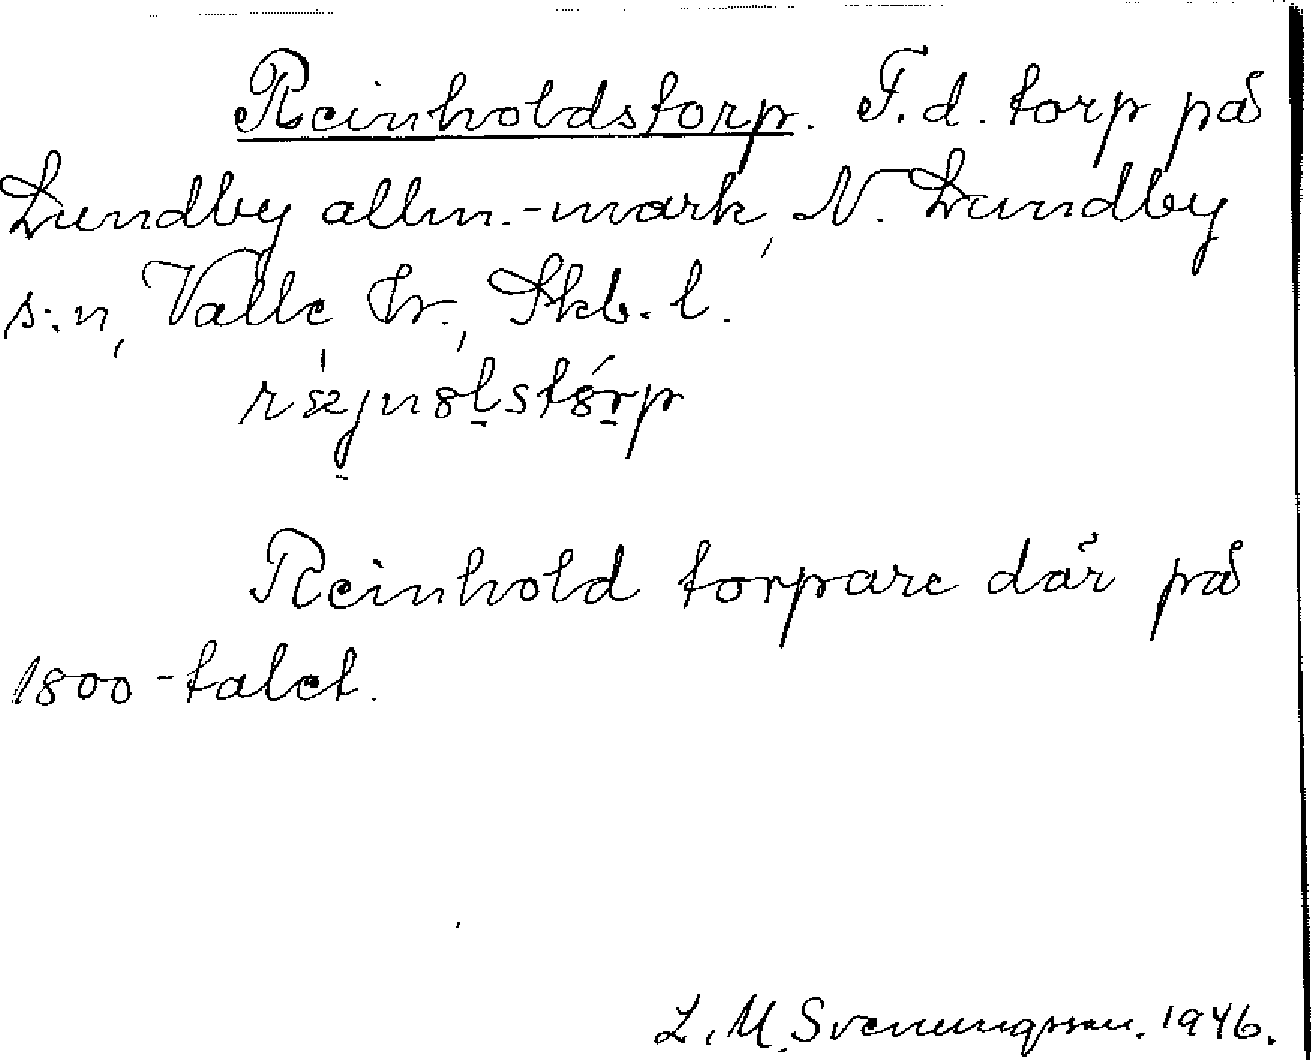 Reinholdstorp. F.d. torp på
Lundby allm.-mark, N. Lundby
s:n, Valle hr., Skb. l.
Reinhold torpare där på
1800-talet.
L. M. Svenungsson. 1946.